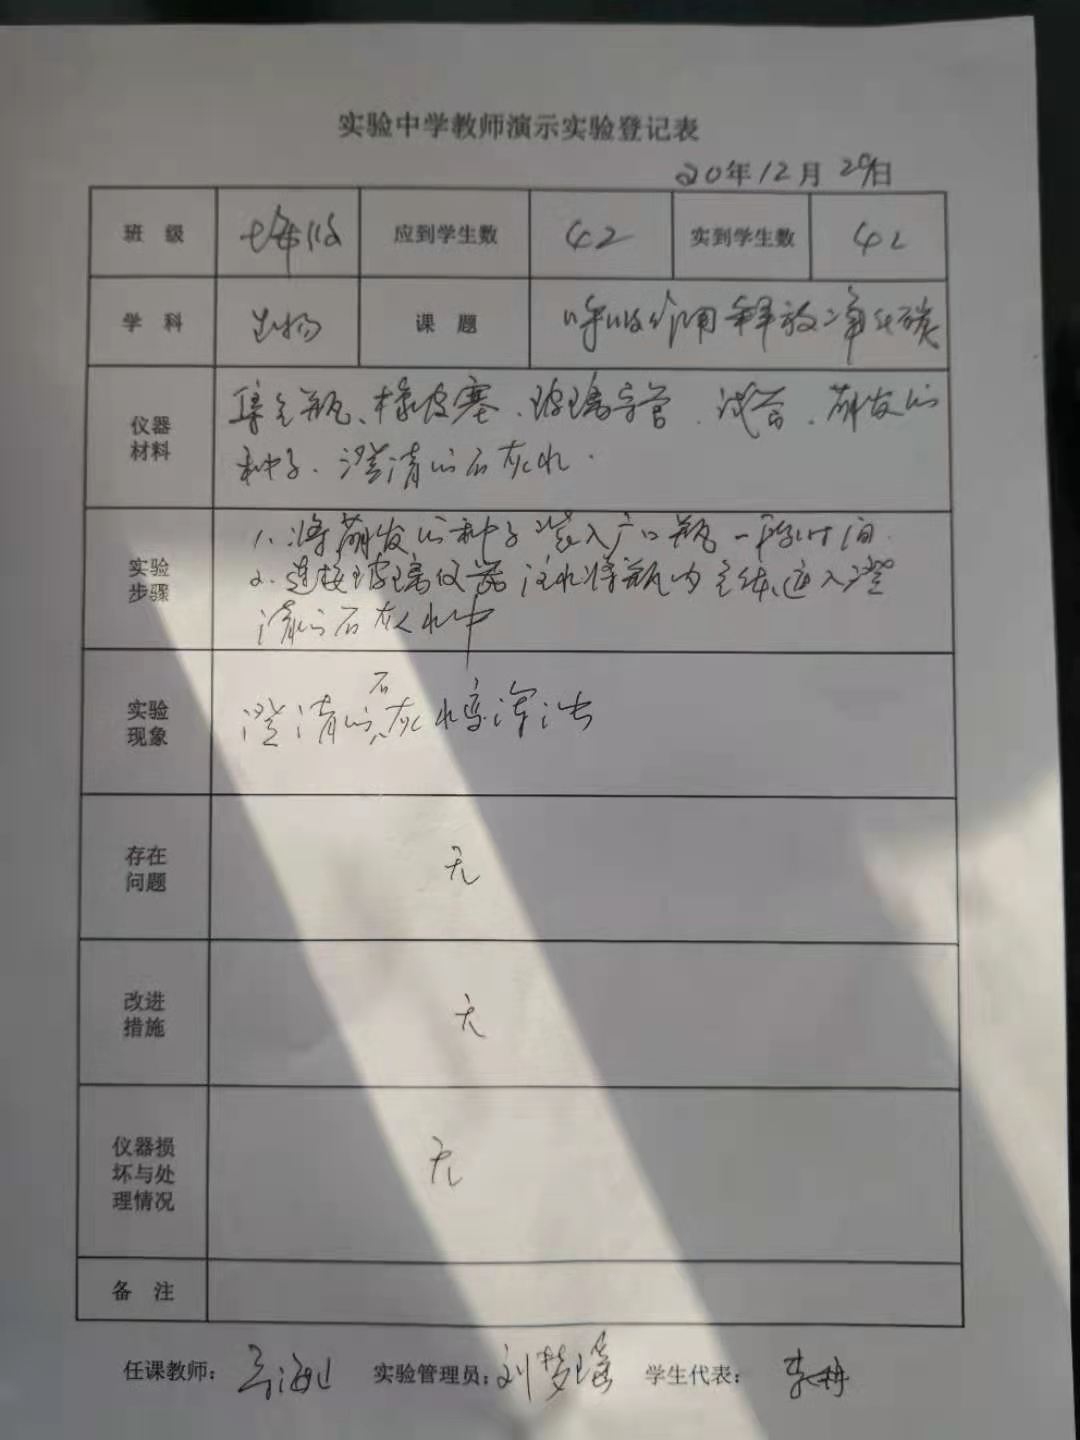 实验中学教师演示实验登记表
20年12月29日
班 级 应到学生数 42 实到学生数 42
学 科 生物 课 题 呼吸作用释放二氧化碳
仪器材料 集气瓶、橡皮塞、玻璃导管、试管、萌发的
种子、澄清的石灰水.
实验步骤 1、将萌发的种子装入广口瓶一段时间.
2、连接玻璃仪器 注水将瓶内气体进入澄
清的石灰水中
实验现象 澄清的石灰水变浑浊
存在问题 无
改进措施 无
仪器损坏与处理情况 无
备 注
任课教师: 实验管理员: 刘梦瑶 学生代表: